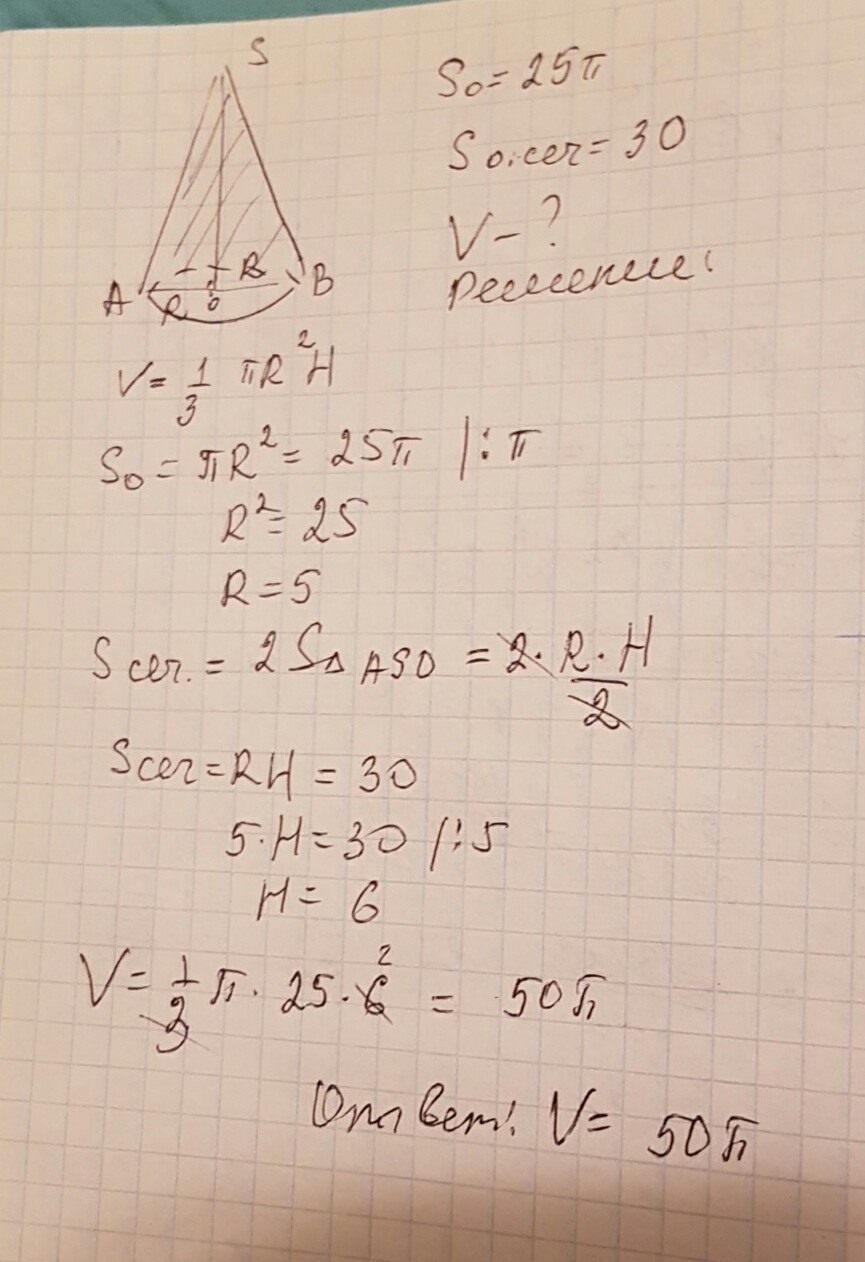 S
A R O R B
S₀ = 25π
S о.сеч = 30
V - ?
Решение:
V = 1/3 πR²H
S₀ = πR² = 25π |:π
R² = 25
R = 5
S сеч. = 2 S△ ASO = 2 · R · H / 2
S сеч = RH = 30
5·H = 30 |:5
H = 6
V = 1/3 π · 25 · 6 ² = 50π
Ответ: V = 50π